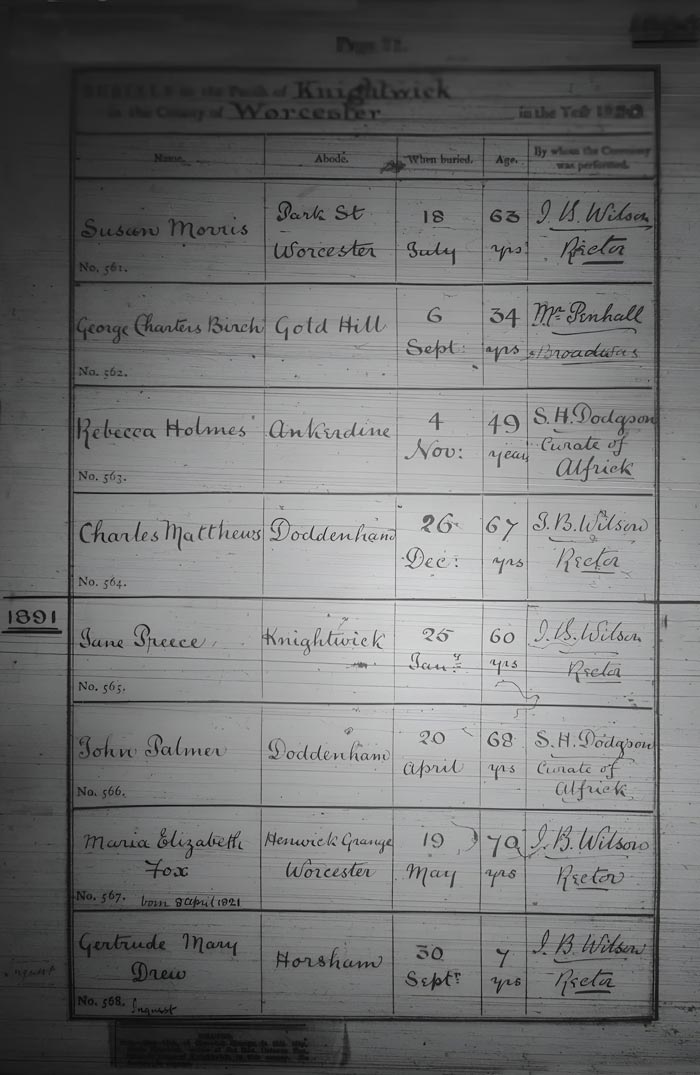 Page 71.
BURIALS in the Parish of Knightwick
in the County of Worcester in the Year 1890
Name. Abode. When buried. Age. By whom the Ceremony was performed.
Susan Morris Park St Worcester 18 July 63 yrs J. B. Wilson Rector
No. 561.
George Charters Birch Gold Hill 6 Sept: 34 yrs Mr Penhall Broadwas
No. 562.
Rebecca Holmes Ankerdine 4 Nov: 49 years S. H. Dodgson Curate of Alfrick
No. 563.
Charles Matthews Doddenham 26 Dec: 67 yrs J. B. Wilson Rector
No. 564.
1891
Jane Preece Knightwick 25 Jany 60 yrs J. B. Wilson Rector
No. 565.
John Palmer Doddenham 20 April 68 yrs S. H. Dodgson Curate of Alfrick
No. 566.
Maria Elizabeth Fox Henwick Grange Worcester 19 May 70 yrs J. B. Wilson Rector
No. 567. born 8 april 1821
Gertrude Mary Drew Horsham 30 Septr 7 yrs J. B. Wilson Rector
No. 568. Inquest